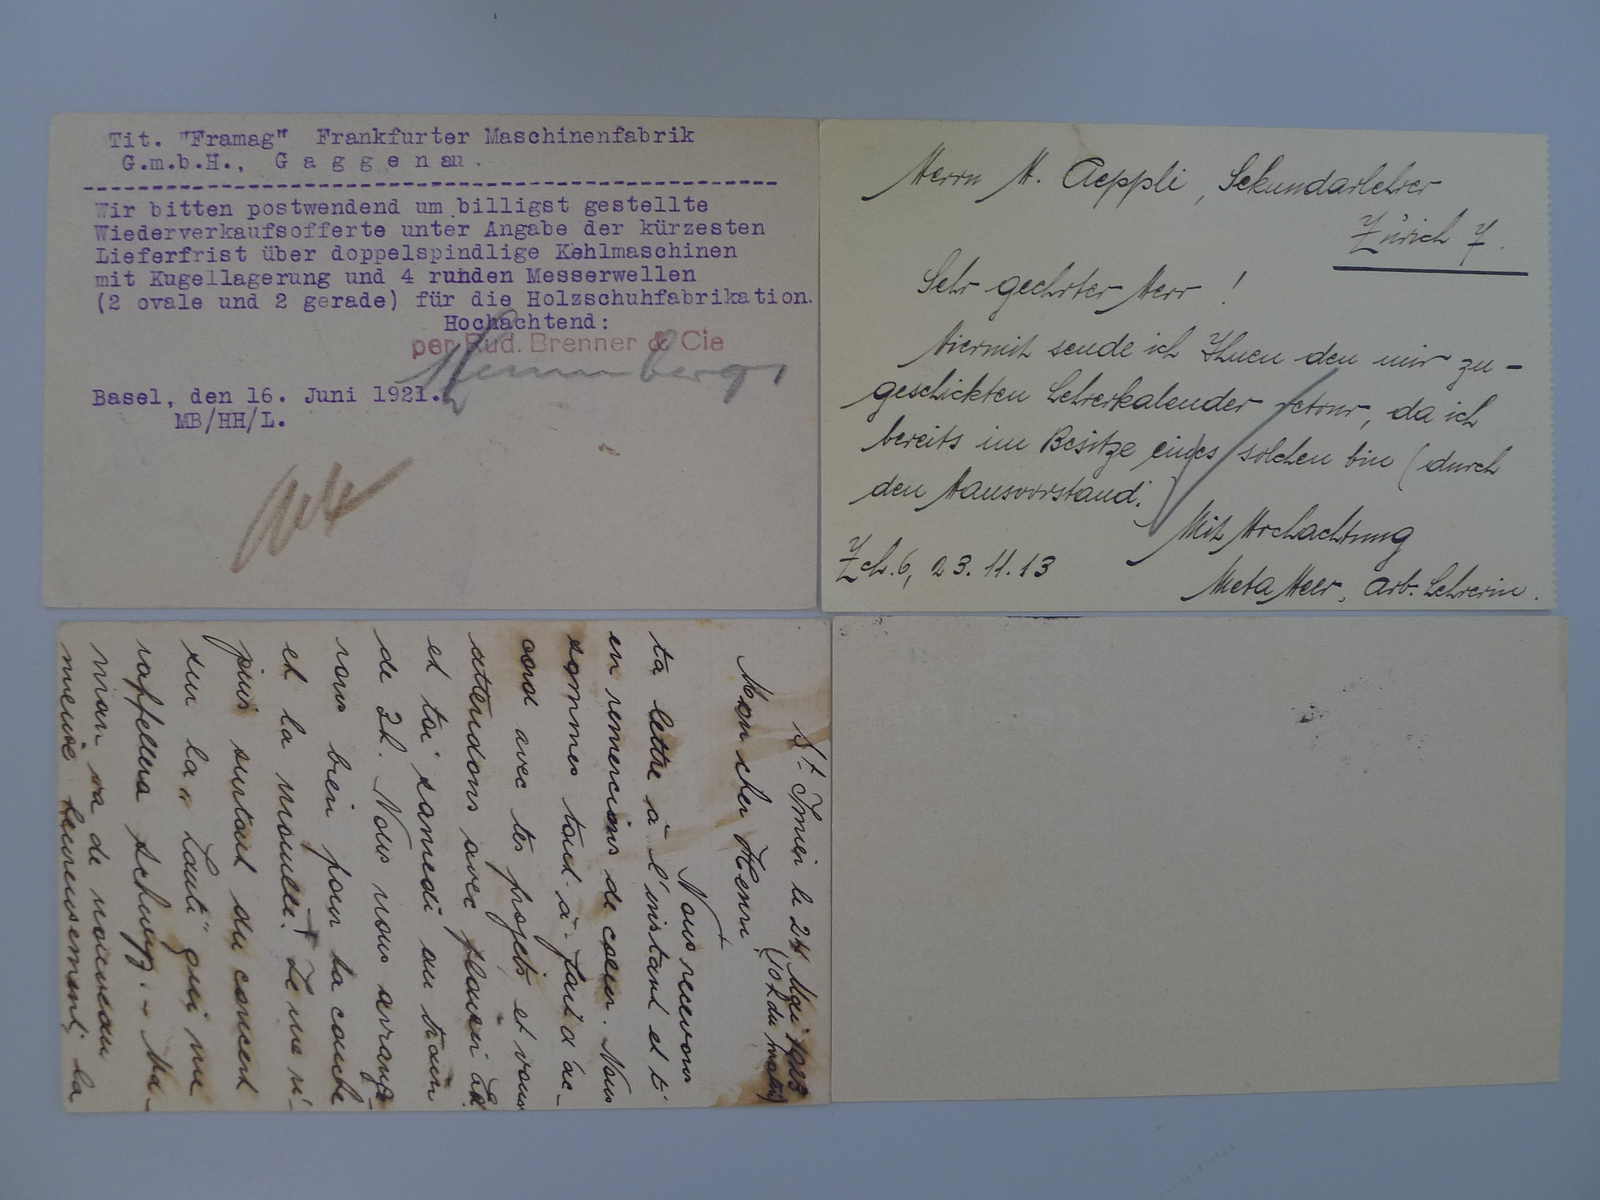 Tit. "Framag" Frankfurter Maschinenfabrik
G.m.b.H., G a g g e n au.
Wir bitten postwendend um billigst gestellte
Wiederverkaufsofferte unter Angabe der kürzesten
Lieferfrist über doppelspindlige Kehlmaschinen
mit Kugellagerung und 4 runden Messerwellen
(2 ovale und 2 gerade) für die Holzschuhfabrikation.
Hochachtend:
per Rud. Brenner & Cie
Basel, den 16. Juni 1921.
MB/HH/L.
Herrn H. Aeppli, Sekundarlehrer
Zürich 7.
Sehr geehrter Herr !
Hiermit sende ich Ihnen den mir zu-
geschickten Lehrerkalender retour, da ich
bereits im Besitze eines solchen bin (durch
den Hausvorstand.
Mit Hochachtung
Zch. 6, 23. 11. 13
Meta Heer, Arb. Lehrerin.
St. Imier le 24 Mai 1923
(10 h du matin)
Mon cher Henri
Nous recevons
ta lettre à l'instant et t'
en remercions de cœur. Nous
sommes tout-à-fait d'ac-
cord avec tes projets et vous
attendons avec plaisir
et toi samedi au train
de 2h. Nous nous arrange-
rons bien pour la couche
et la mouille. Je me ré-
jouis surtout du concert
sur la qui me
rappellera Schwyz. - Ma-
man va de nouveau
mieux heureusement, la